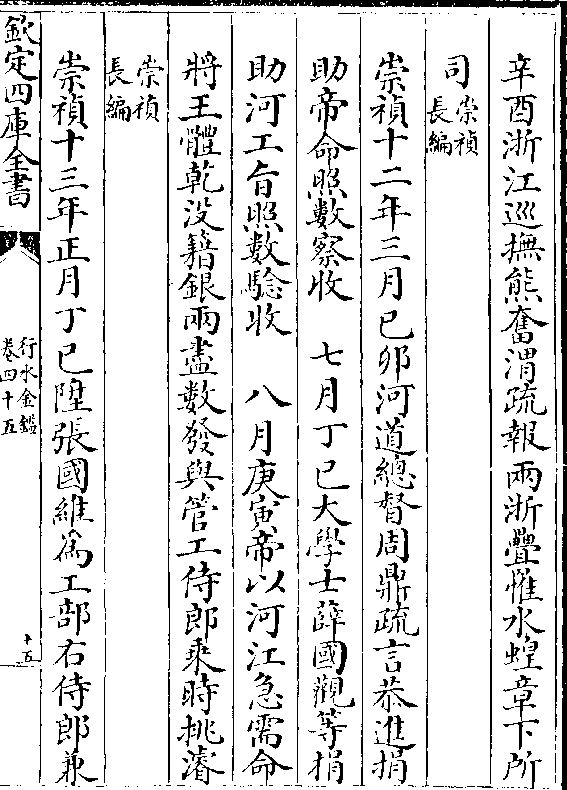 辛酉浙江巡撫熊奮渭疏報兩浙疊罹水蝗章下所
司崇禎長編
崇禎十二年三月己卯河道總督周鼎疏言恭進捐
助帝命照數察收　七月丁巳大學士薛國觀等捐
助河工旨照數驗收　八月庚寅帝以河江急需命
將王體乾没籍銀兩盡數發與管工侍郎乘時挑濬
崇禎長編
崇禎十三年正月丁巳陞張國維爲工部右侍郎兼
欽定四庫全書
行水金鑑
卷四十五
十五